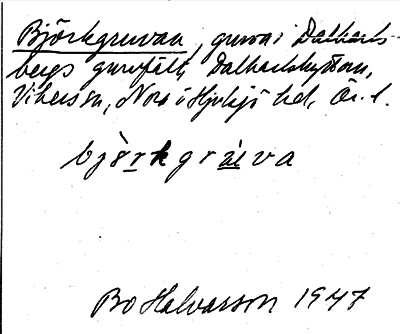 Björkgruvan, gruva i Dalkarls-
bergs gruvfält, Dalkarlshyttan,
Vikersvn, Nora o Hjulsjö hd, Ör. l.
björkgrùva
Bo Halvarsson 1947